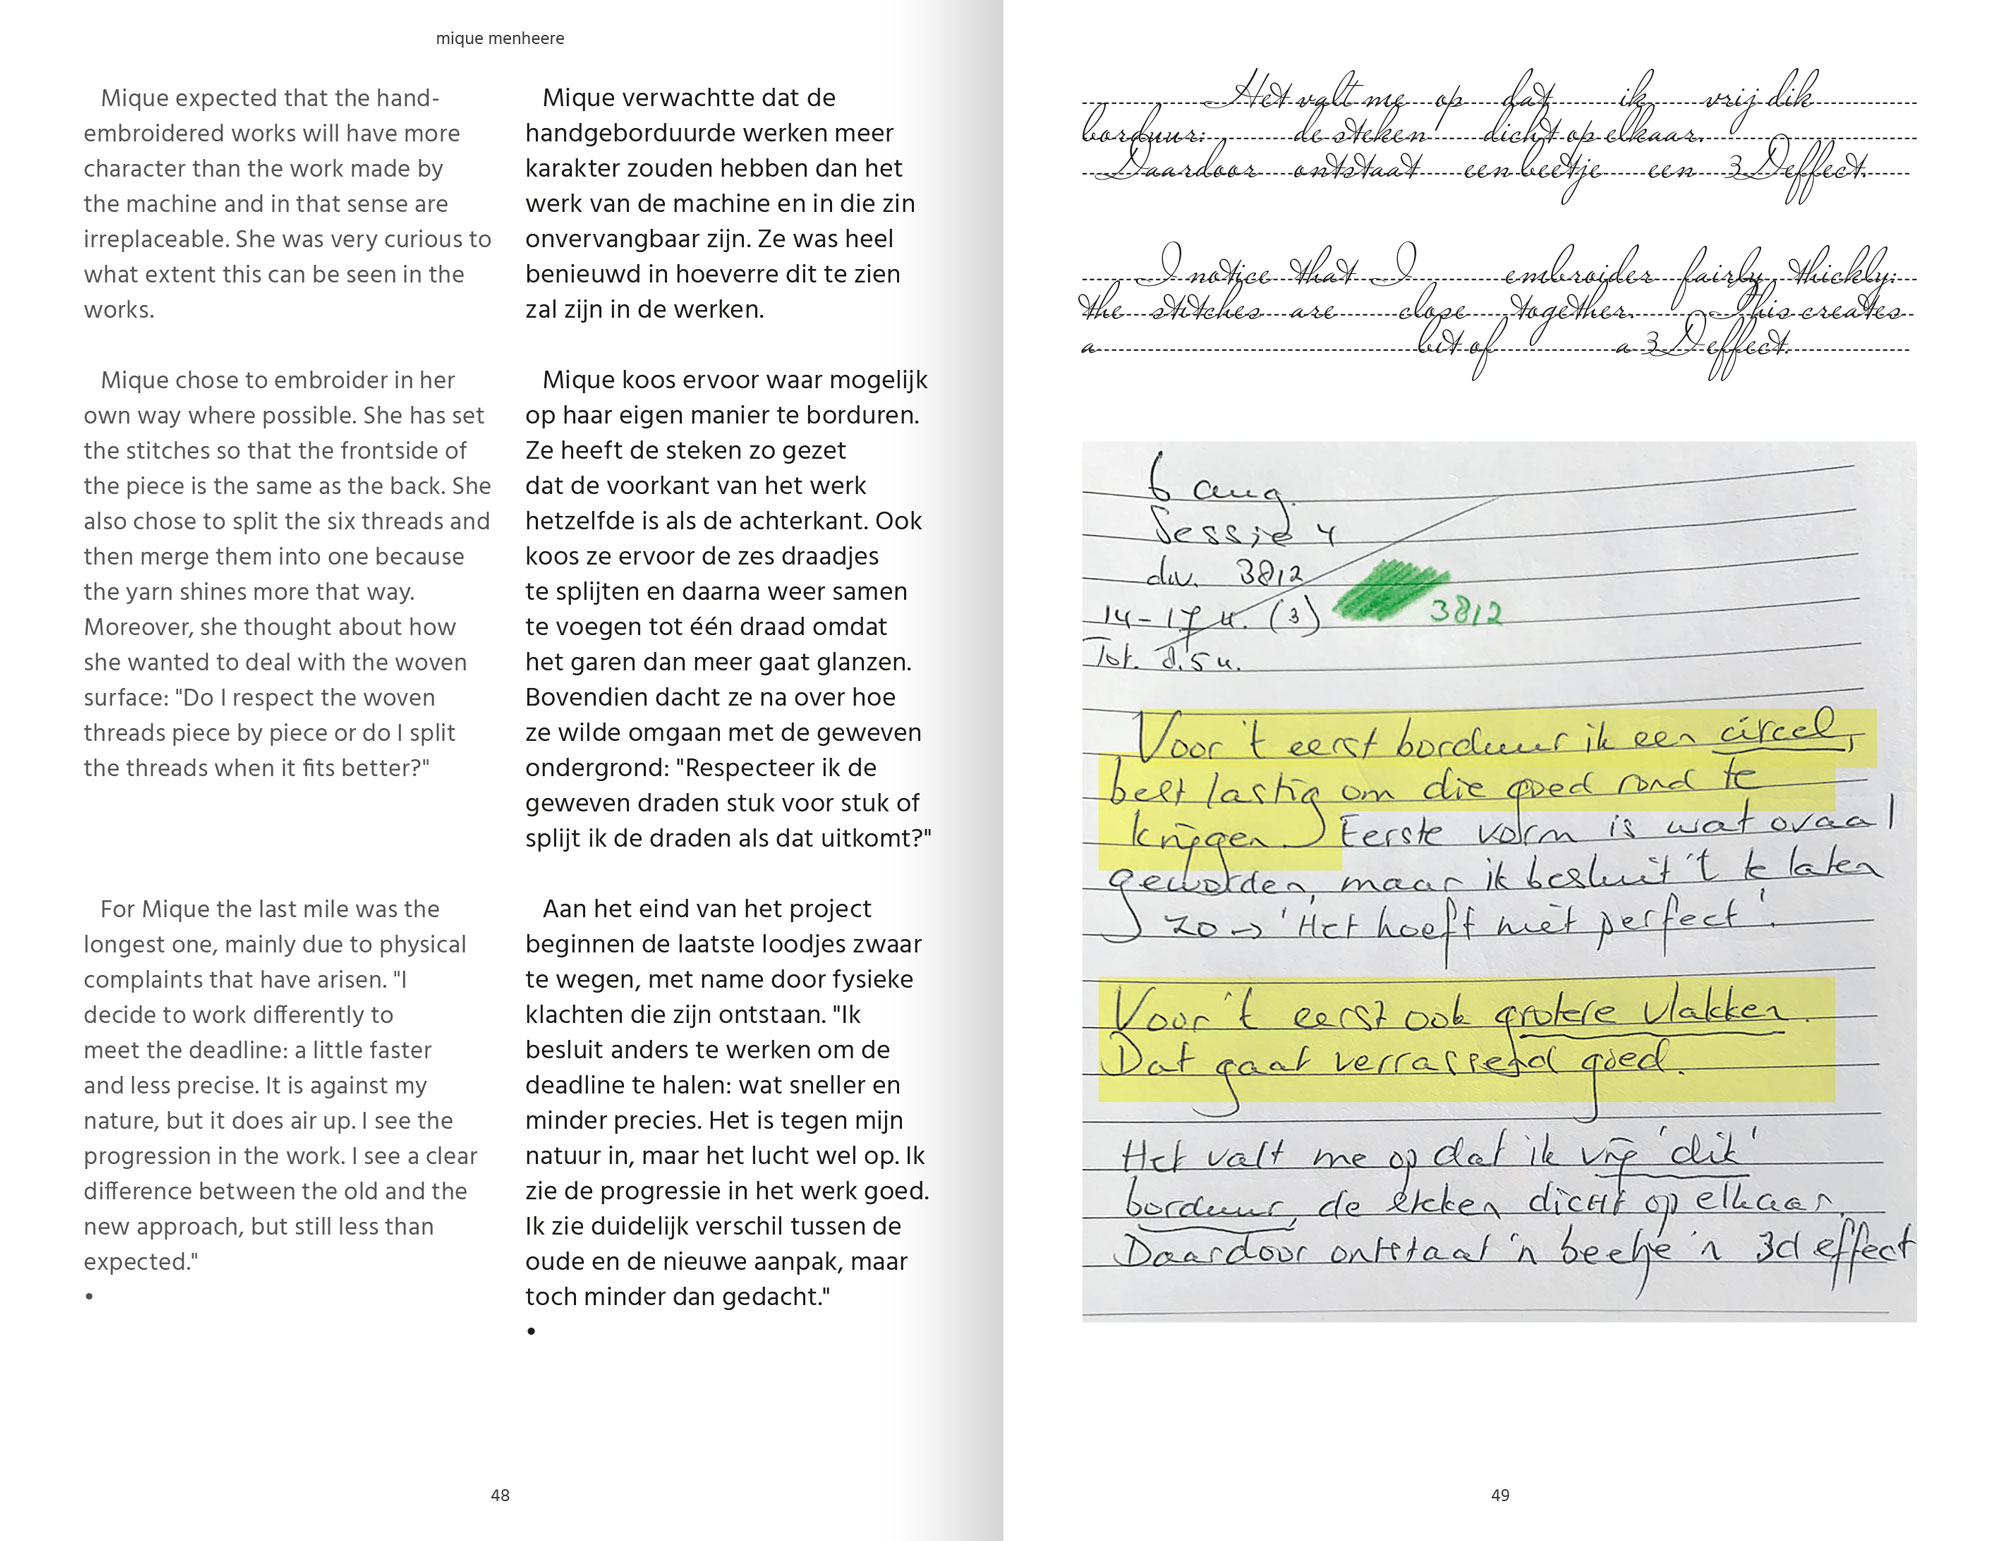 mique menheere
Mique expected that the hand-
embroidered works will have more
character than the work made by
the machine and in that sense are
irreplaceable. She was very curious to
what extent this can be seen in the
works.
Mique chose to embroider in her
own way where possible. She has set
the stitches so that the frontside of
the piece is the same as the back. She
also chose to split the six threads and
then merge them into one because
the yarn shines more that way.
Moreover, she thought about how
she wanted to deal with the woven
surface: "Do I respect the woven
threads piece by piece or do I split
the threads when it fits better?"
For Mique the last mile was the
longest one, mainly due to physical
complaints that have arisen. "I
decide to work differently to
meet the deadline: a little faster
and less precise. It is against my
nature, but it does air up. I see the
progression in the work. I see a clear
difference between the old and the
new approach, but still less than
expected."
•
Mique verwachtte dat de
handgeborduurde werken meer
karakter zouden hebben dan het
werk van de machine en in die zin
onvervangbaar zijn. Ze was heel
benieuwd in hoeverre dit te zien
zal zijn in de werken.
Mique koos ervoor waar mogelijk
op haar eigen manier te borduren.
Ze heeft de steken zo gezet
dat de voorkant van het werk
hetzelfde is als de achterkant. Ook
koos ze ervoor de zes draadjes
te splijten en daarna weer samen
te voegen tot één draad omdat
het garen dan meer gaat glanzen.
Bovendien dacht ze na over hoe
ze wilde omgaan met de geweven
ondergrond: "Respecteer ik de
geweven draden stuk voor stuk of
splijt ik de draden als dat uitkomt?"
Aan het eind van het project
beginnen de laatste loodjes zwaar
te wegen, met name door fysieke
klachten die zijn ontstaan. "Ik
besluit anders te werken om de
deadline te halen: wat sneller en
minder precies. Het is tegen mijn
natuur in, maar het lucht wel op. Ik
zie de progressie in het werk goed.
Ik zie duidelijk verschil tussen de
oude en de nieuwe aanpak, maar
toch minder dan gedacht."
•
48
Het valt me op dat ik vrij dik
borduur: de steken dicht op elkaar.
Daardoor ontstaat een beetje een 3D effect.
I notice that I embroider fairly thickly:
the stitches are close together. This creates
a bit of a 3D effect.
6 aug.
Sessie 4
div. 3812
14-17 u. (3) 3812
Tot. 5 u.
Voor 't eerst borduur ik een circel,
best lastig om die goed rond te
krijgen. Eerste vorm is wat ovaal
geworden, maar ik besluit 't te laten
zo → 'Het hoeft niet perfect'.
Voor 't eerst ook grotere vlakken.
Dat gaat verrassend goed.
Het valt me op dat ik vrij 'dik'
borduur, de steken dicht op elkaar.
Daardoor ontstaat 'n beetje 'n 3d effect
49